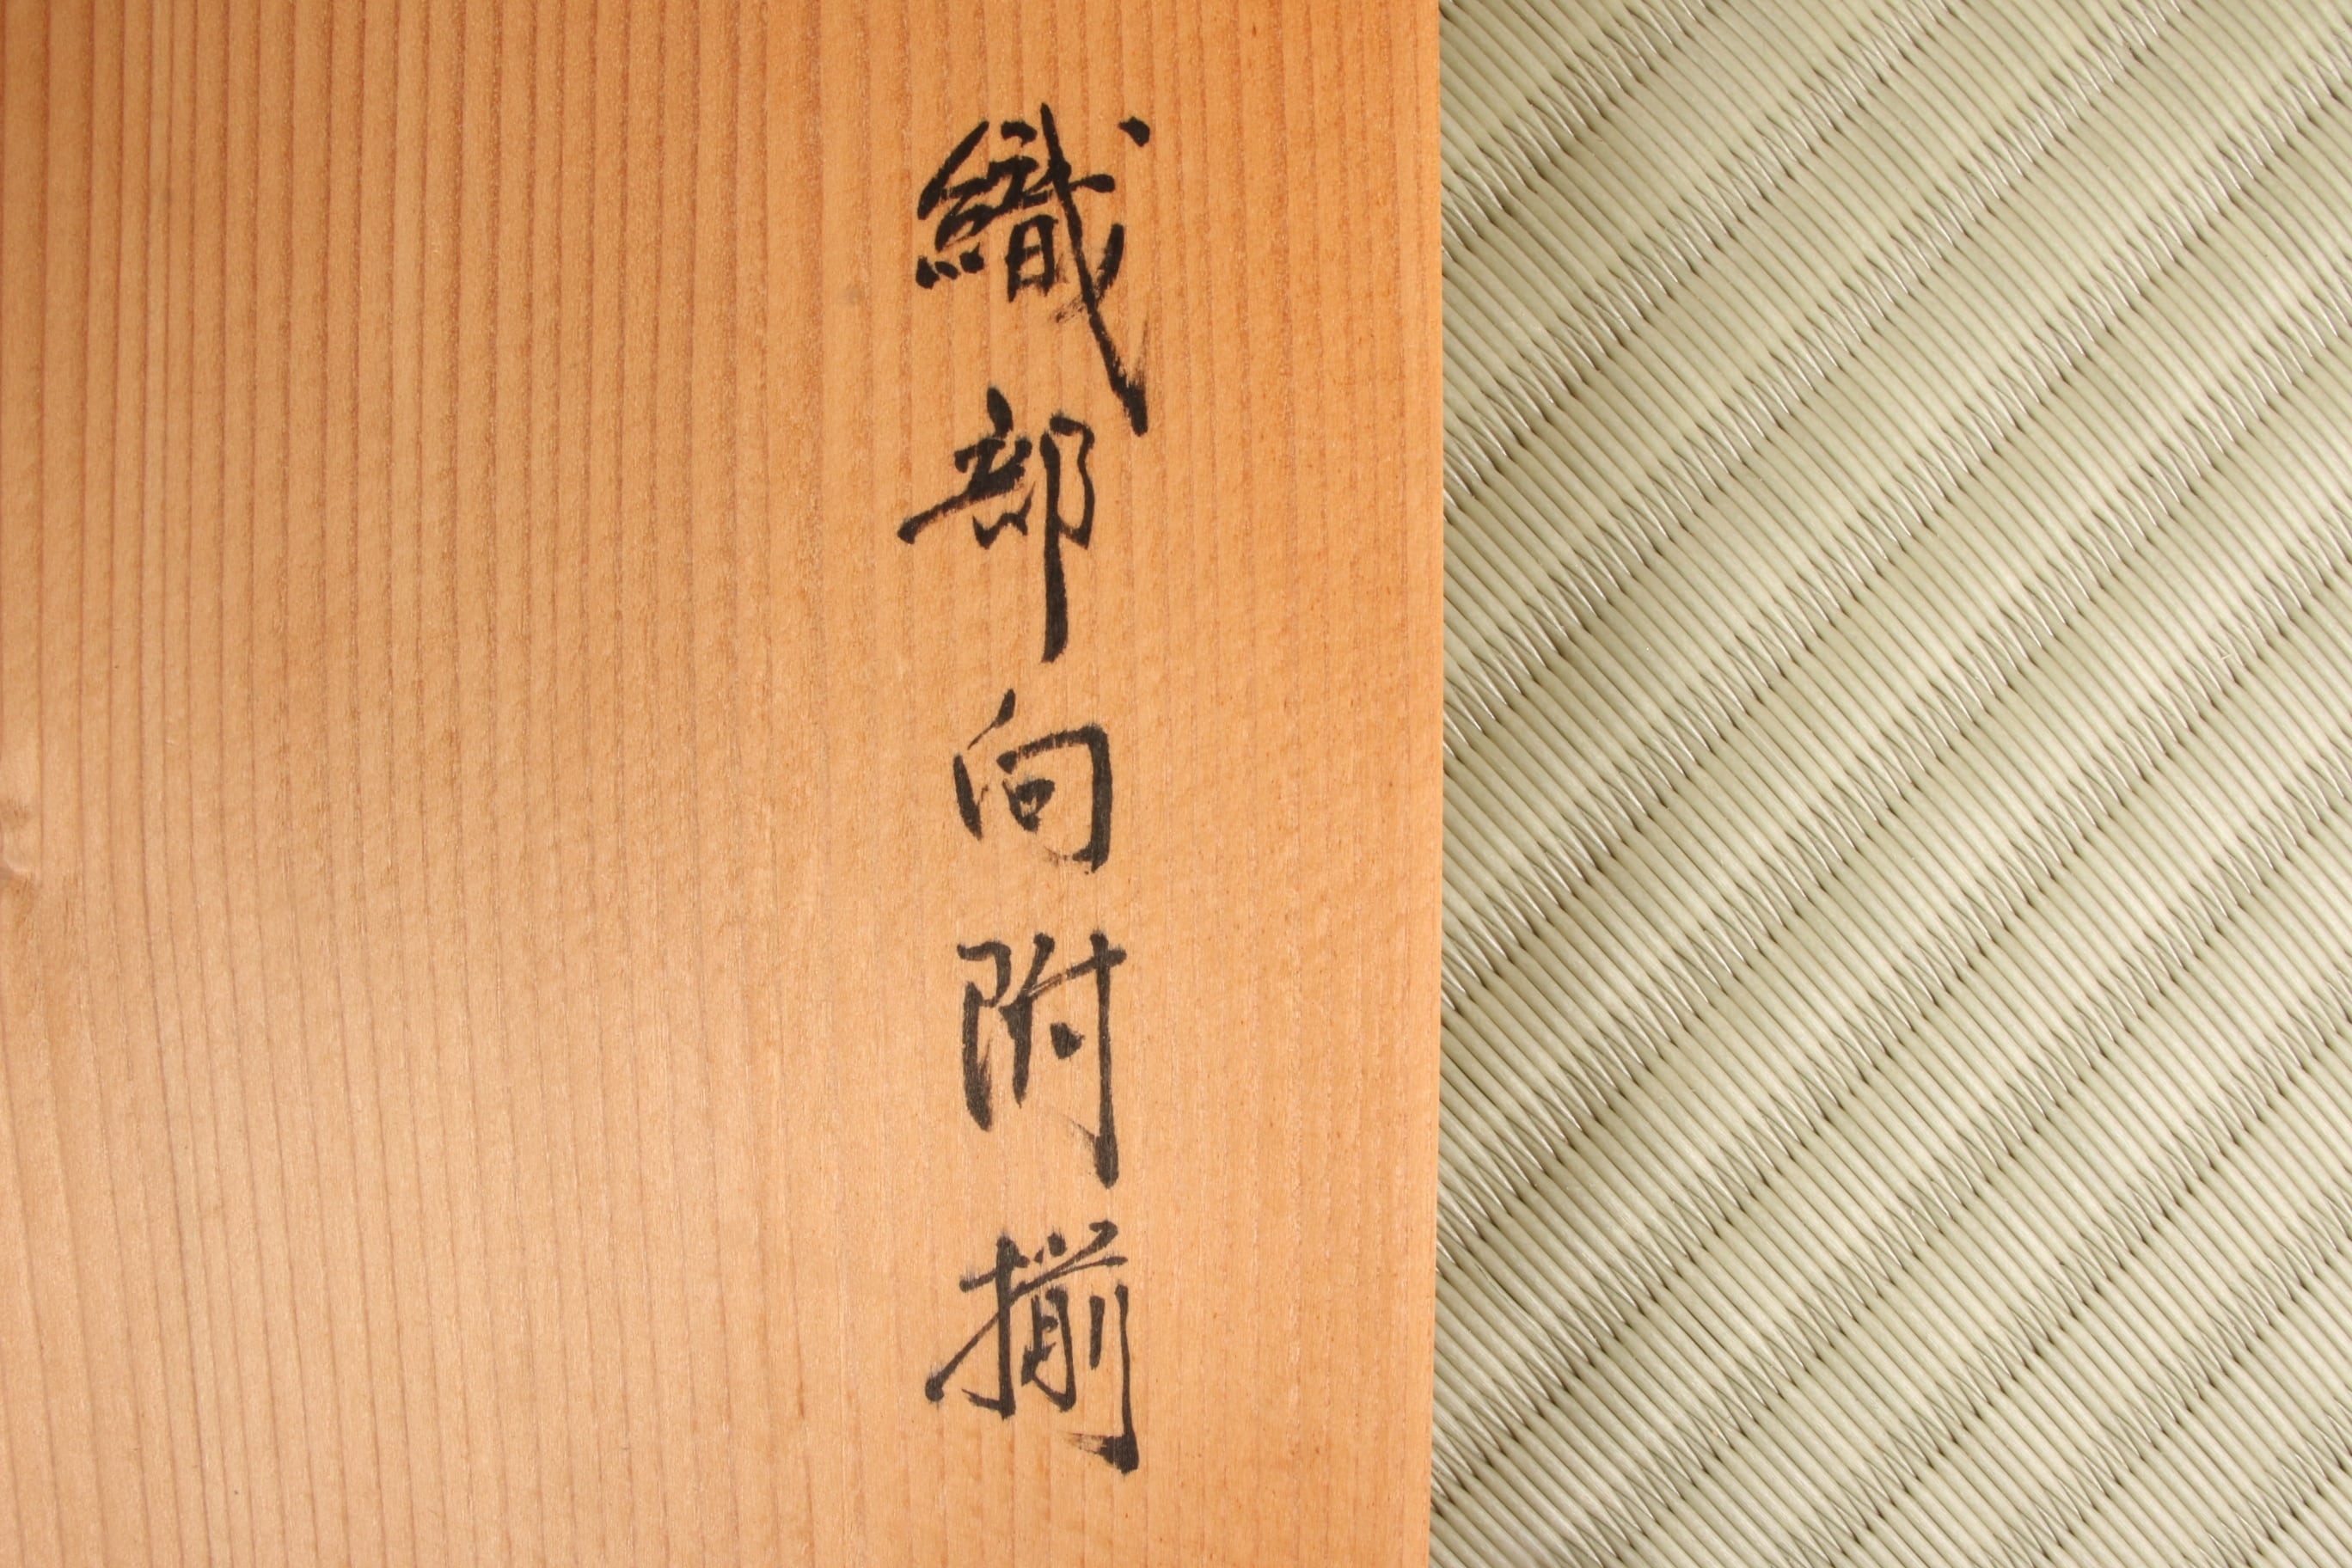 織部向附揃